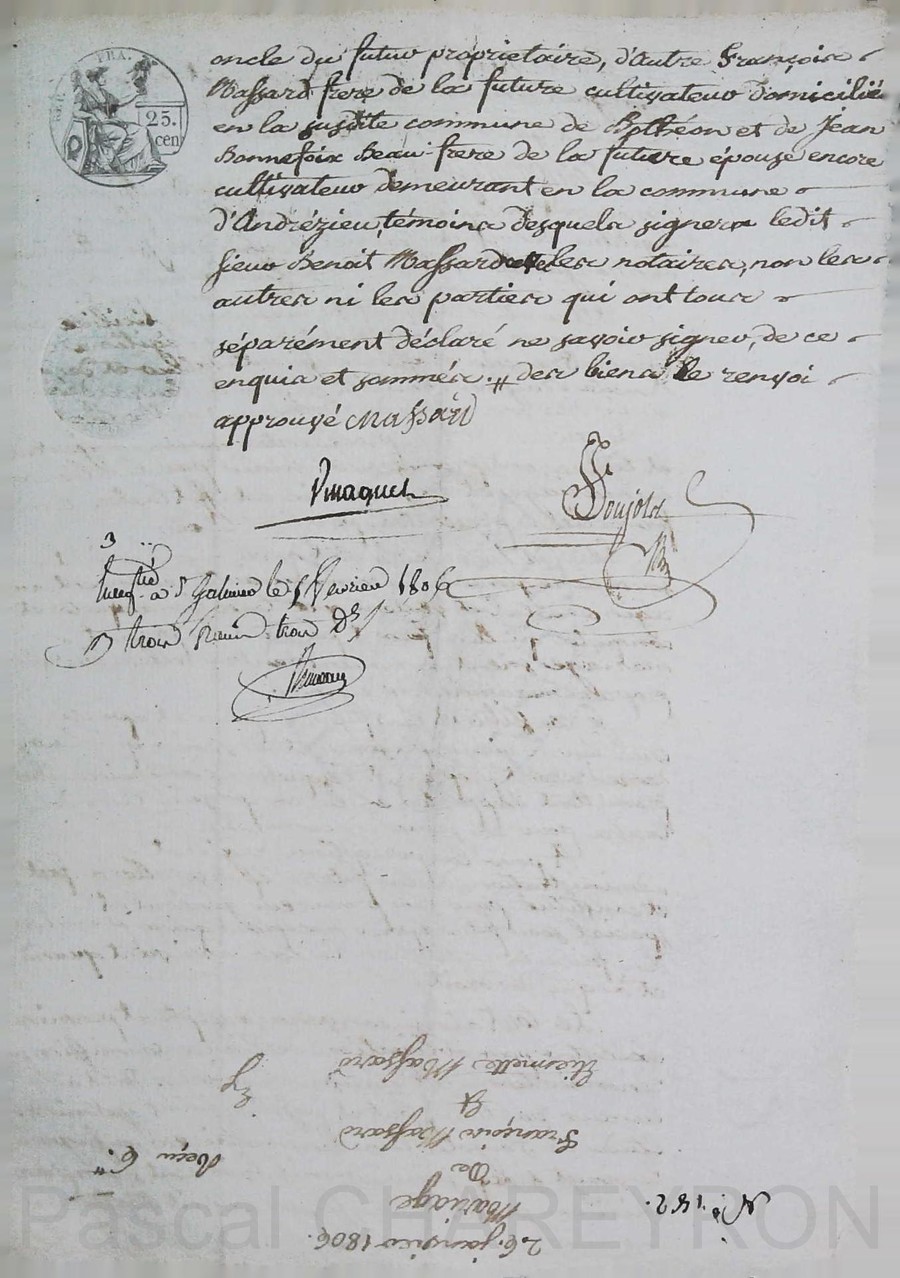 REP. FRA.
25.
cen
oncle du futur proprietaire, d'autre François
Massard frere de la future cultivateur domicilié
en la susdite commune de Bothéon et de Jean
Bonnefoix Beau-frere de la future épouse encore
cultivateur demeurant en la commune
d'Andrézieu, témoins desquels signera ledit
sieur Benoit Massard les notaires, non les
autres ni les parties qui ont tous
séparément déclaré ne savoir signer, de ce
enquis et sommés. des biens le renvoi
approuvé Massard
a St Galmier le 1806
trois trois
26. janvier 1806.
Mariage
De
François Massard
Et
Etiennette Massard
Reçu 6.
N.° 152.
Pascal CHAREYRON